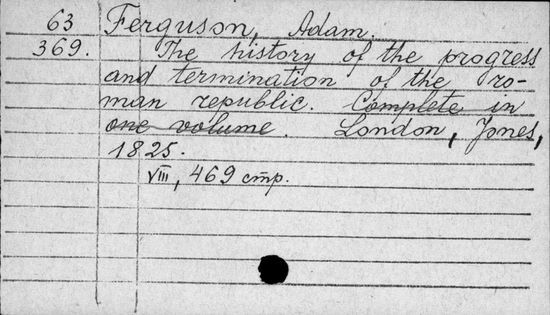 63 Ferguson, Adam.
369. The history of the progress
and termination of the ro-
man republic. Complete in
one volume. London, Jones,
1825.
VIII, 469 стр.